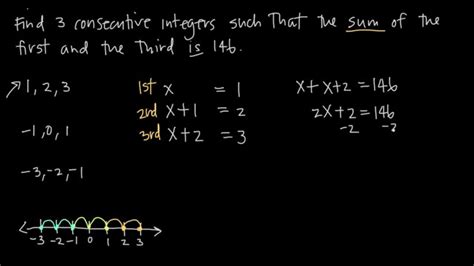 Find 3 consecutive integers such That the sum of the
first and the Third is 146.
1, 2, 3
-1, 0, 1
-3, -2, -1
1st x = 1
2nd x+1 = 2
3rd x+2 = 3
x + x+2 = 146
2x+2 = 146
-2 -2
-3 -2 -1 0 1 2 3